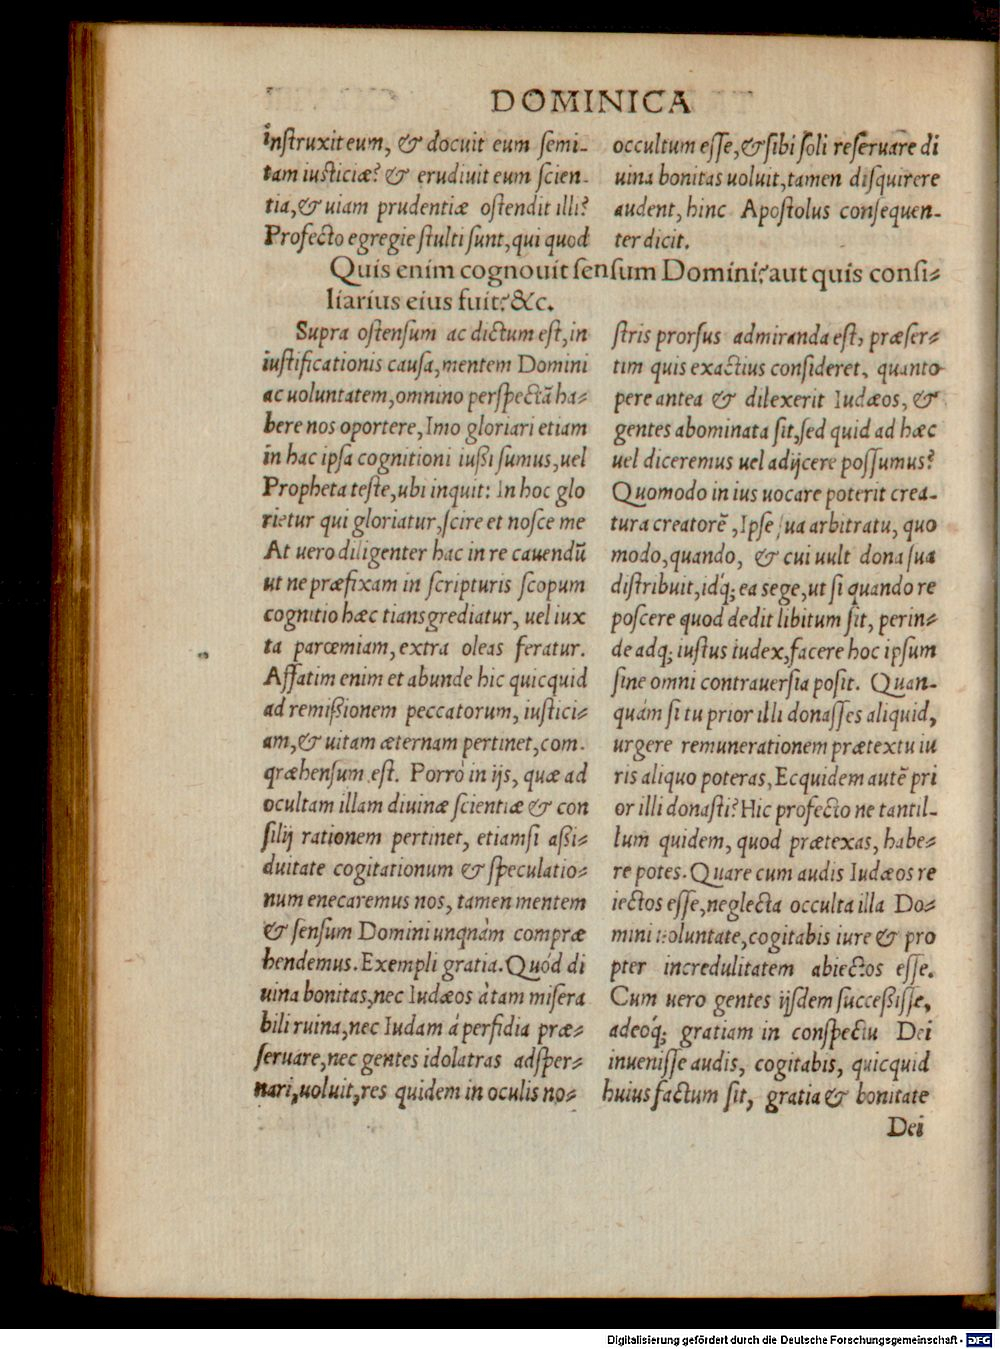 DOMINICA
instruxit eum, & docuit eum semi-
tam iusticiæ? & erudiuit eum scien-
tia, & uiam prudentiæ ostendit illi?
Profecto egregie stulti sunt, qui quod
occultum esse, & sibi soli reseruare di
uina bonitas uoluit, tamen disquirere
audent, hinc Apostolus consequen-
ter dicit.
Quis enim cognouit sensum Domini? aut quis consi-
liarius eius fuit? &c.
Supra ostensum ac dictum est, in
iustificationis causa, mentem Domini
ac uoluntatem, omnino perspectā ha-
bere nos oportere, Imo gloriari etiam
in hac ipsa cognitioni iußi sumus, uel
Propheta teste, ubi inquit: In hoc glo
rietur qui gloriatur, scire et nosce me
At uero diligenter hac in re cauendū
ut ne præfixam in scripturis scopum
cognitio hæc tiansgrediatur, uel iux
ta parœmiam, extra oleas feratur.
Affatim enim et abunde hic quicquid
ad remißionem peccatorum, iustici-
am, & uitam æternam pertinet, com-
qræhensum est. Porrò in ijs, quæ ad
ocultam illam diuinæ scientiæ & con
silij rationem pertinet, etiamsi aßi-
duitate cogitationum & speculatio-
num enecaremus nos, tamen mentem
& sensum Domini unqnàm compræ
hendemus. Exempli gratia. Quód di
uina bonitas, nec Iudæos à tam misera
bili ruina, nec Iudam á perfidia præ-
seruare, nec gentes idolatras adsper-
nari, uoluit, res quidem in oculis no-
stris prorsus admiranda est, præser-
tim quis exactius consideret, quanto
pere antea & dilexerit Iudæos, &
gentes abominata sit, sed quid ad hæc
uel diceremus uel adijcere possumus?
Quomodo in ius uocare poterit crea-
tura creatorē, Ipse sua arbitratu, quo
modo, quando, & cui uult dona sua
distribuit, idq́; ea sege, ut si quando re
poscere quod dedit libitum sit, perin-
de adq; iustus iudex, facere hoc ipsum
sine omni contrauersia posit. Quan-
quám si tu prior illi donasses aliquid,
urgere remunerationem prætextu iu
ris aliquo poteras, Ecquidem autē pri
or illi donasti? Hic profecto ne tantil-
lum quidem, quod prætexas, habe-
re potes. Quare cum audis Iudæos re
iectos esse, neglecta occulta illa Do-
mini uoluntate, cogitabis iure & pro
pter incredulitatem abiectos esse.
Cum uero gentes ijsdem succeßisse,
adeoq́; gratiam in conspectu Dei
inuenisse audis, cogitabis, quicquid
huius factum sit, gratia & bonitate
Dei
Digitalisierung gefördert durch die Deutsche Forschungsgemeinschaft - DFG